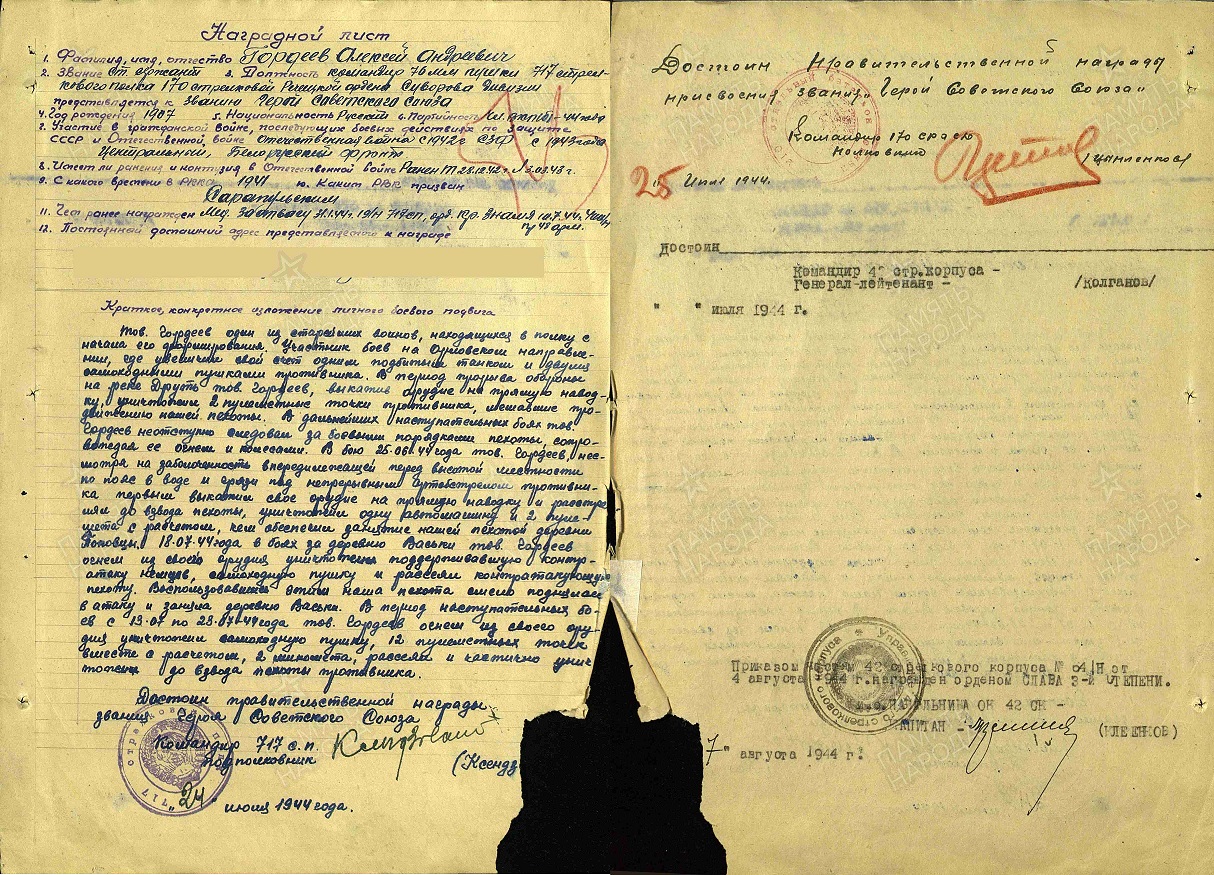 Наградной лист
1. Фамилия, имя, отчество Гордеев Алексей Андреевич
2. Звание ст. сержант 3. Должность командир 76 мм пушки 717 стрел-
кового полка 170 стрелковой Речицкой ордена Суворова дивизии
представляется к званию Герой Советского Союза
4. Год рождения 1907 5. Национальность Русский 6. Партийность
7. Участие в гражданской войне, последующих боевых действиях по защите
СССР и Отечественной войне Отечественная война с 1942 г. СЗФ с 1943 года
Центральный, Белорусский фронт
8. Имеет ли ранения и контузия в Отечественной войне Ранен 28.12.42 г.
9. С какого времени в РККА 1941 10. Каким РВК призван
Сарапульским
11. Чем ранее награжден Мед. За отвагу 717 сп, орд. Кр. Знамя 10.7.44
48 арм.
12. Постоянный домашний адрес представляемого к награде
Краткое, конкретное изложение личного боевого подвига
Тов. Гордеев один из старейших воинов, находящихся в полку с
начала его формирования. Участник боев на Орловском направле-
нии, где увеличил свой счет одним подбитым танком и двумя
самоходными пушками противника. В период прорыва обороны
на реке Друть тов. Гордеев, выкатив орудие на прямую навод-
ку, уничтожил 2 пулеметные точки противника, мешавшие про-
движению нашей пехоты. В дальнейших наступательных боях тов.
Гордеев неотступно следовал за боевыми порядками пехоты, сопро-
вождая ее огнем и колесами. В бою 25.06.44 года тов. Гордеев, нес-
мотря на заболоченность впередилежащей перед высотой местности
по пояс в воде и грязи под непрерывным артобстрелом противни-
ка первым выкатил свое орудие на прямую наводку и расстре
лял до взвода пехоты, уничтожил одну автомашину и 2 пуле-
мета с расчетом, чем обеспечил занятие нашей пехотой деревни
18.07.44 года в боях за деревню Васьки тов. Гордеев
огнем из своего орудия уничтожил поддерживавшую контр-
атаку немцев, самоходную пушку и рассеял контратакующую
пехоту. Воспользовавшись этим наша пехота смело поднялась
в атаку и заняла деревню Васьки. В период наступательных бо-
ев с 13.07 по 23.07.44 года тов. Гордеев огнем из своего ору-
дия уничтожил самоходную пушку, 12 пулеметных точек
вместе с расчетом, 2 миномета, рассеял и частично унич
тожил до взвода пехоты противника.
Достоин правительственной награды
звания Героя Советского Союза
Командир 717 с.п.
подполковник
(Ксендз
"24" июля 1944 года.
Достоин Правительственной награды
присвоения звания "Герой Советского Союза"
Командир 170 СРДСД
полковник
/Цыпленков/
25 Июля 1944.
Достоин
Командир 42 стр.корпуса -
Генерал-лейтенант - /Колганов/
" " июля 1944 г.
Приказом частям 42 стрелкового корпуса № 04/Н от
4 августа 1944 г. награжден орденом СЛАВА 3-й СТЕПЕНИ.
НАЧАЛЬНИКА ОК 42 СК -
КАПИТАН - (КЛЕЕНКОВ)
7" августа 1944 г.
ПАМЯТЬ
НАРОДА